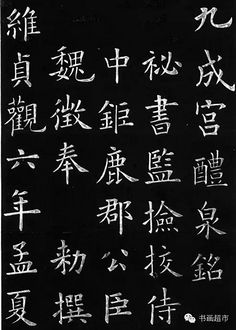 九成宮醴泉銘
秘書監撿挍侍
中鉅鹿郡公臣
魏徵奉 勅撰
維貞觀六年孟夏
书画超市